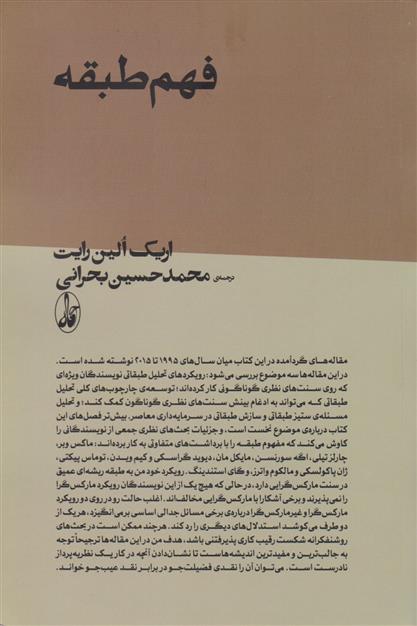 فهم طبقه
اریک اُلین رایت
ترجمه‌ی محمدحسین بحرانی
مقاله‌های گردآمده در این کتاب میان سال‌های ۱۹۹۵ تا ۲۰۱۵ نوشته شده است.
در این مقاله‌ها سه موضوع بررسی می‌شود: رویکردهای تحلیل طبقاتی نویسندگان ویژه‌ای
که روی سنت‌های نظری گوناگونی کار کرده‌اند؛ توسعه‌ی چارچوب‌های کلی تحلیل
طبقاتی که می‌تواند به ادغام بینش سنت‌های نظری گوناگون کمک کند؛ و تحلیل
مسئله‌ی ستیز طبقاتی و سازش طبقاتی در سرمایه‌داری معاصر. بیش‌تر فصل‌های این
کتاب درباره‌ی موضوع نخست است، و جزئیات بحث‌های نظری جمعی از نویسندگانی را
کاوش می‌کند که مفهوم طبقه را با برداشت‌های متفاوتی به کار برده‌اند: ماکس وبر،
چارلز تیلی، اگه سورنسن، مایکل مان، دیوید گراسکی و کیم ویدن، توماس پیکتی،
ژان پاکولسکی و مالکوم واترز، و گای استندینگ. رویکرد خود من به طبقه ریشه‌ای عمیق
در سنت مارکس‌گرایی دارد، در حالی که هیچ یک از این نویسندگان رویکرد مارکس‌گرا
را نمی‌پذیرند و برخی آشکارا با مارکس‌گرایی مخالف‌اند. اغلب حالت رودرروی دو رویکرد
مارکس‌گرا و غیرمارکس‌گرا درباره‌ی برخی مسائل جدالی اساسی برمی‌انگیزد، هر یک از
دو طرف می‌کوشد استدلال‌های دیگری را رد کند. هرچند ممکن است در بحث‌های
روشنفکرانه شکست رقیب کاری پذیرفتنی باشد، هدف من در این مقاله‌ها ترجیحاً توجه
به جالب‌ترین و مفیدترین اندیشه‌هاست تا نشان‌دادن آنچه در کار یک نظریه‌پرداز
نادرست است. می‌توان آن را نقدی فضیلت‌جو در برابر نقد عیب‌جو خواند.